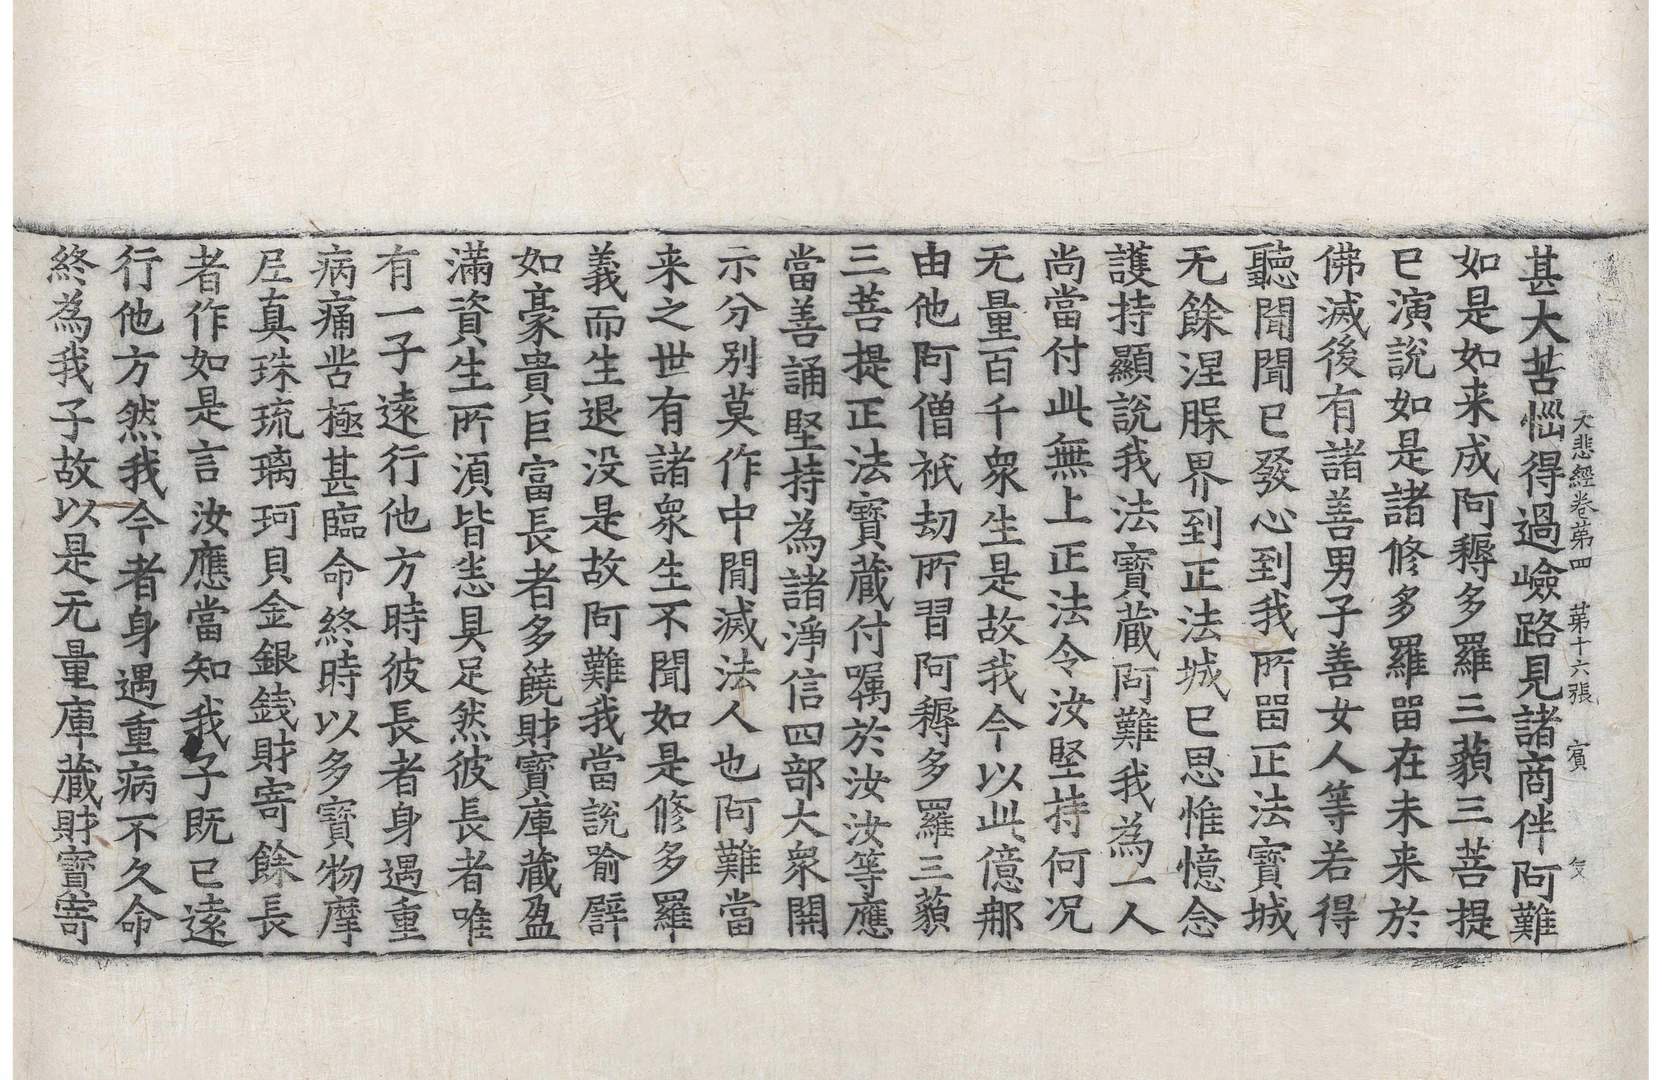 大悲經卷第四　第十六張　賓
甚大苦惱得過嶮路見諸商伴阿難
如是如来成阿耨多羅三藐三菩提
已演說如是諸修多羅畱在未来於
佛滅後有諸善男子善女人等若得
聽聞聞已發心到我所畱正法寶城
无餘涅槃界到正法城已思惟憶念
護持顯說我法寶藏阿難我為一人
尚當付此無上正法令汝堅持何况
无量百千衆生是故我今以此億那
由他阿僧祇劫所習阿耨多羅三藐
三菩提正法寶藏付嘱於汝汝等應
當善誦堅持為諸淨信四部大衆開
示分別莫作中閒滅法人也阿難當
来之世有諸衆生不聞如是修多羅
義而生退没是故阿難我當說喻譬
如豪貴巨富長者多饒財寶庫藏盈
滿資生所湏皆悉具足然彼長者唯
有一子遠行他方時彼長者身遇重
病痛苦極甚臨命終時以多寶物摩
尼真珠琉璃珂貝金銀錢財寄餘長
者作如是言汝應當知我子既已遠
行他方然我今者身遇重病不久命
終為我子故以是无量庫藏財寶寄